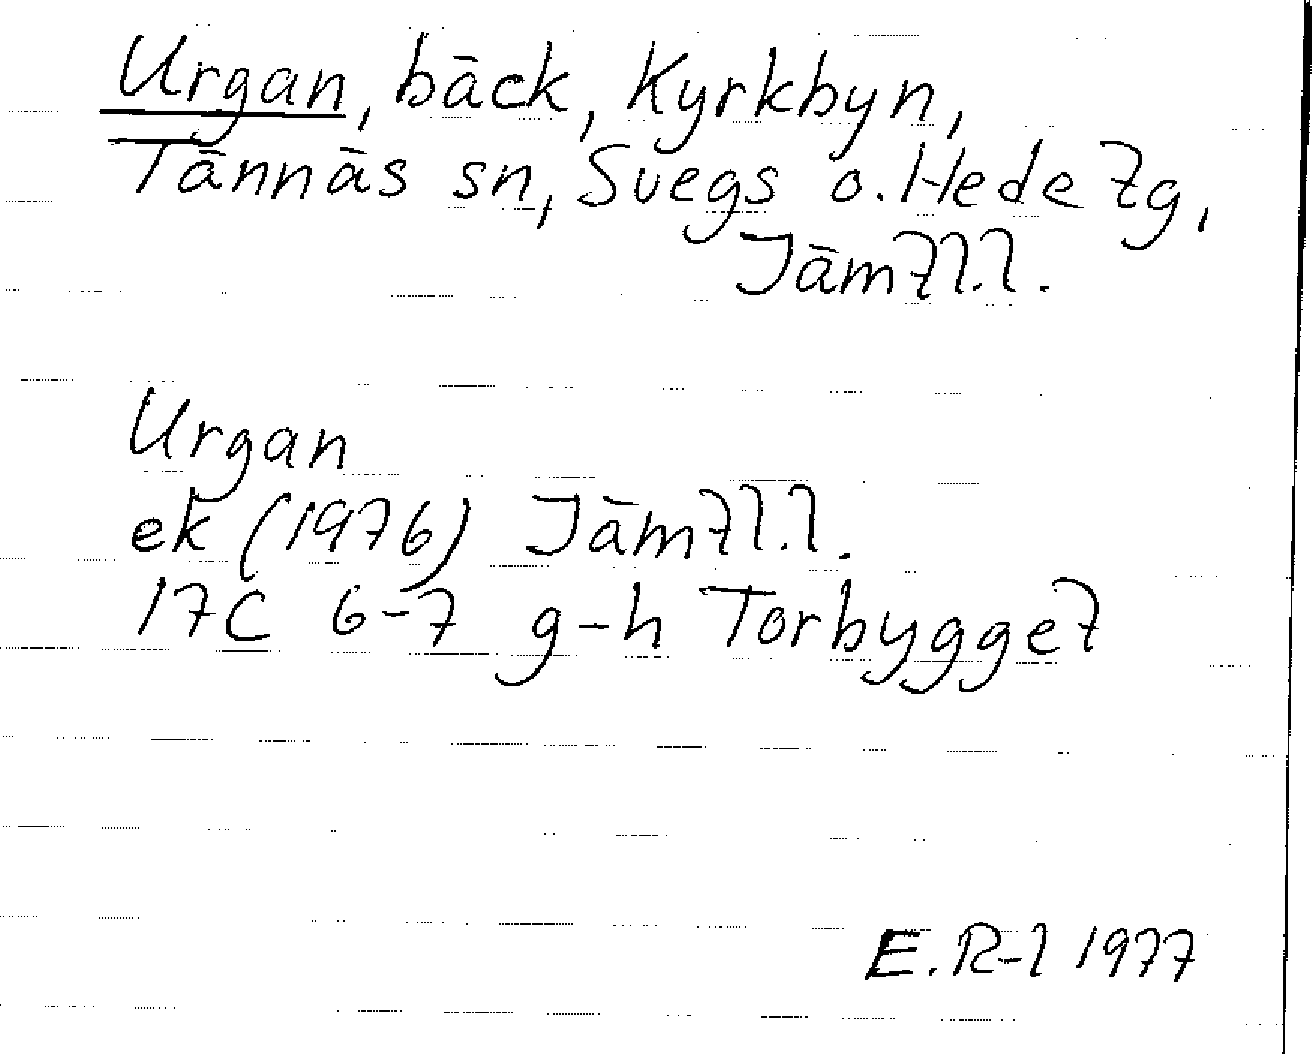 Urgan, bäck, Kyrkbyn,
Tännäs sn, Svegs o. Hede tg,
Jämtl. l.
Urgan
ek (1976) Jämtl. l.
17C 6-7 g-h Torbygget
E. R-l 1977